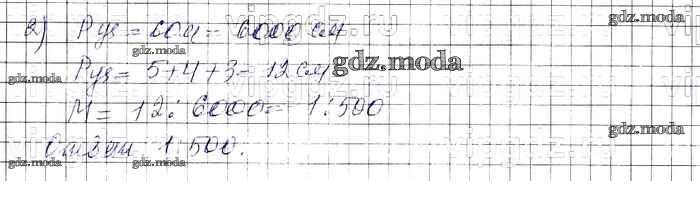 2) Pуч = 60м = 6000 см
Pуч = 5+4+3 = 12 см
М = 12 : 6000 = 1:500
Ответ 1:500.
gdz.moda
gdz.moda
gdz.moda
gdz.moda
gdz.moda
gdz.moda
gdz.moda